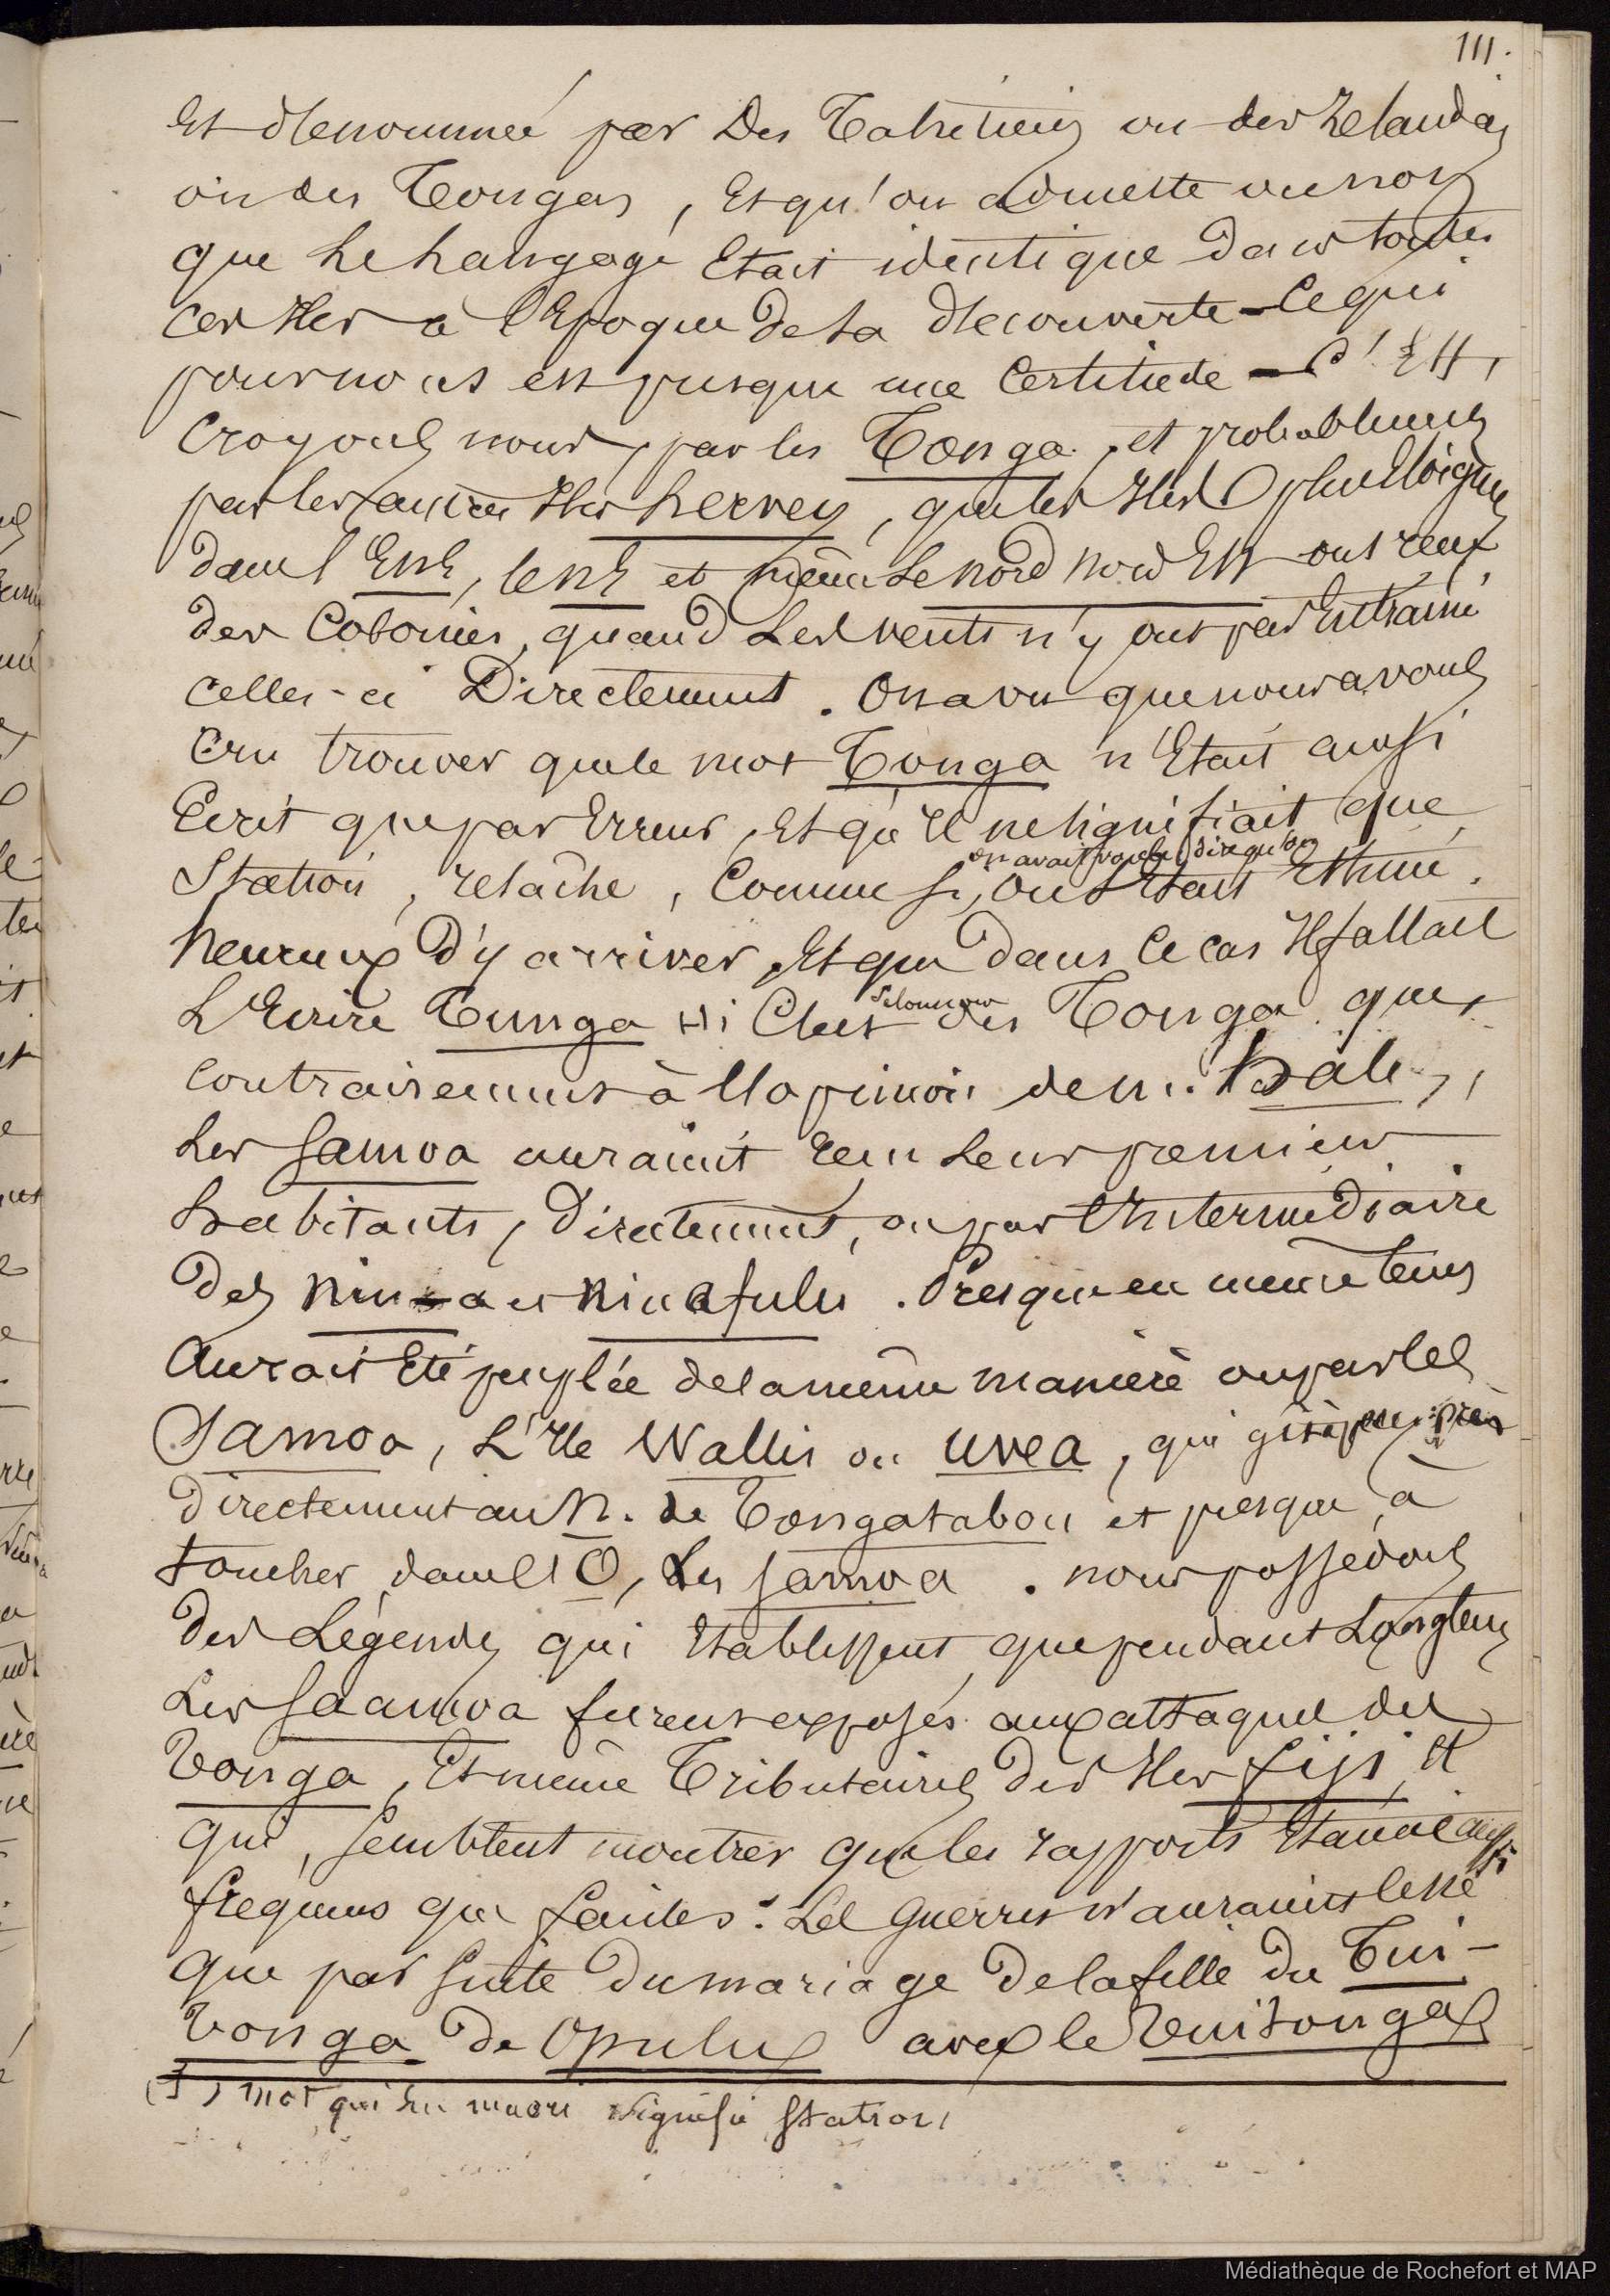 111.
Et dénommée par Des Tahitiens ou des Zélandais
ou des Tongas, Et qu'on admette ou non
que Le Langage Etait identique dans toutes
ces Iles à l'Epoque de La découverte - Ce qui
pour nous est presque une Certitude - C'Est,
Croyons nous, par les Tonga, et probablement
par les autres Iles hervey, que les Iles plus Eloignées
dans l'Est, le NE et même Le Nord Nord Est ont reçu
des Colonies, quand Les vents n'y ont pas Entrainé
celles-ci Directement. On a vu que nous avons
Cru trouver que le mot Tonga n'Etait ainsi
Ecrit que par Erreur, Et qu'Il ne signifiait que
Station, relâche, Comme si, on avait voulu dire qu'on
on s'Etait Estimé
heureux D'y arriver, Et que dans Ce cas Il fallait
L'Ecrire Tunga (1) C'Est selon nous des Tonga que
Contrairement à l'opinion de M. Hale,
Les Samoa auraient reçu Leurs premiers
habitants, Directement, ou par l'Intermédiaire
Des Niua et Niuafulu. Presque en même tems
Aurait Eté peuplée de la même manière ou par les
Samoa, L'Ile Wallis ou Uvea, qui gît à peu près
Directement au N. de Tongatabou et presque à
toucher dans l'O, Les Samoa. nous possédons
Des Légendes qui Etablissent que pendant Longtems
Les Saamoa furent exposés aux attaques des
Tonga, Et même Tributaires des Iles Fiji, Et
qui, semblent montrer que les rapports Etaient aussi
fréquens que faciles. Les Guerres n'auraient cessé
Que par suite du mariage De la fille du Tui-
Tonga de Opulu avec le Tuitonga
(1) mot qui En maori signifie Station
Médiathèque de Rochefort et MAP